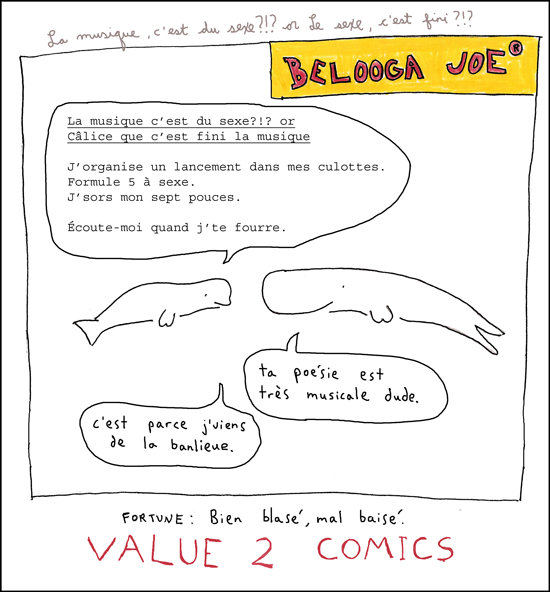 La musique, c'est du sexe?!? or Le sexe, c'est fini?!?
BELOOGA JOE®
La musique c'est du sexe?!? or
Câlice que c'est fini la musique
J'organise un lancement dans mes culottes.
Formule 5 à sexe.
J'sors mon sept pouces.
Écoute-moi quand j'te fourre.
ta poésie est
très musicale dude.
c'est parce j'viens
de la banlieue.
FORTUNE: Bien blasé, mal baisé.
VALUE 2 COMICS